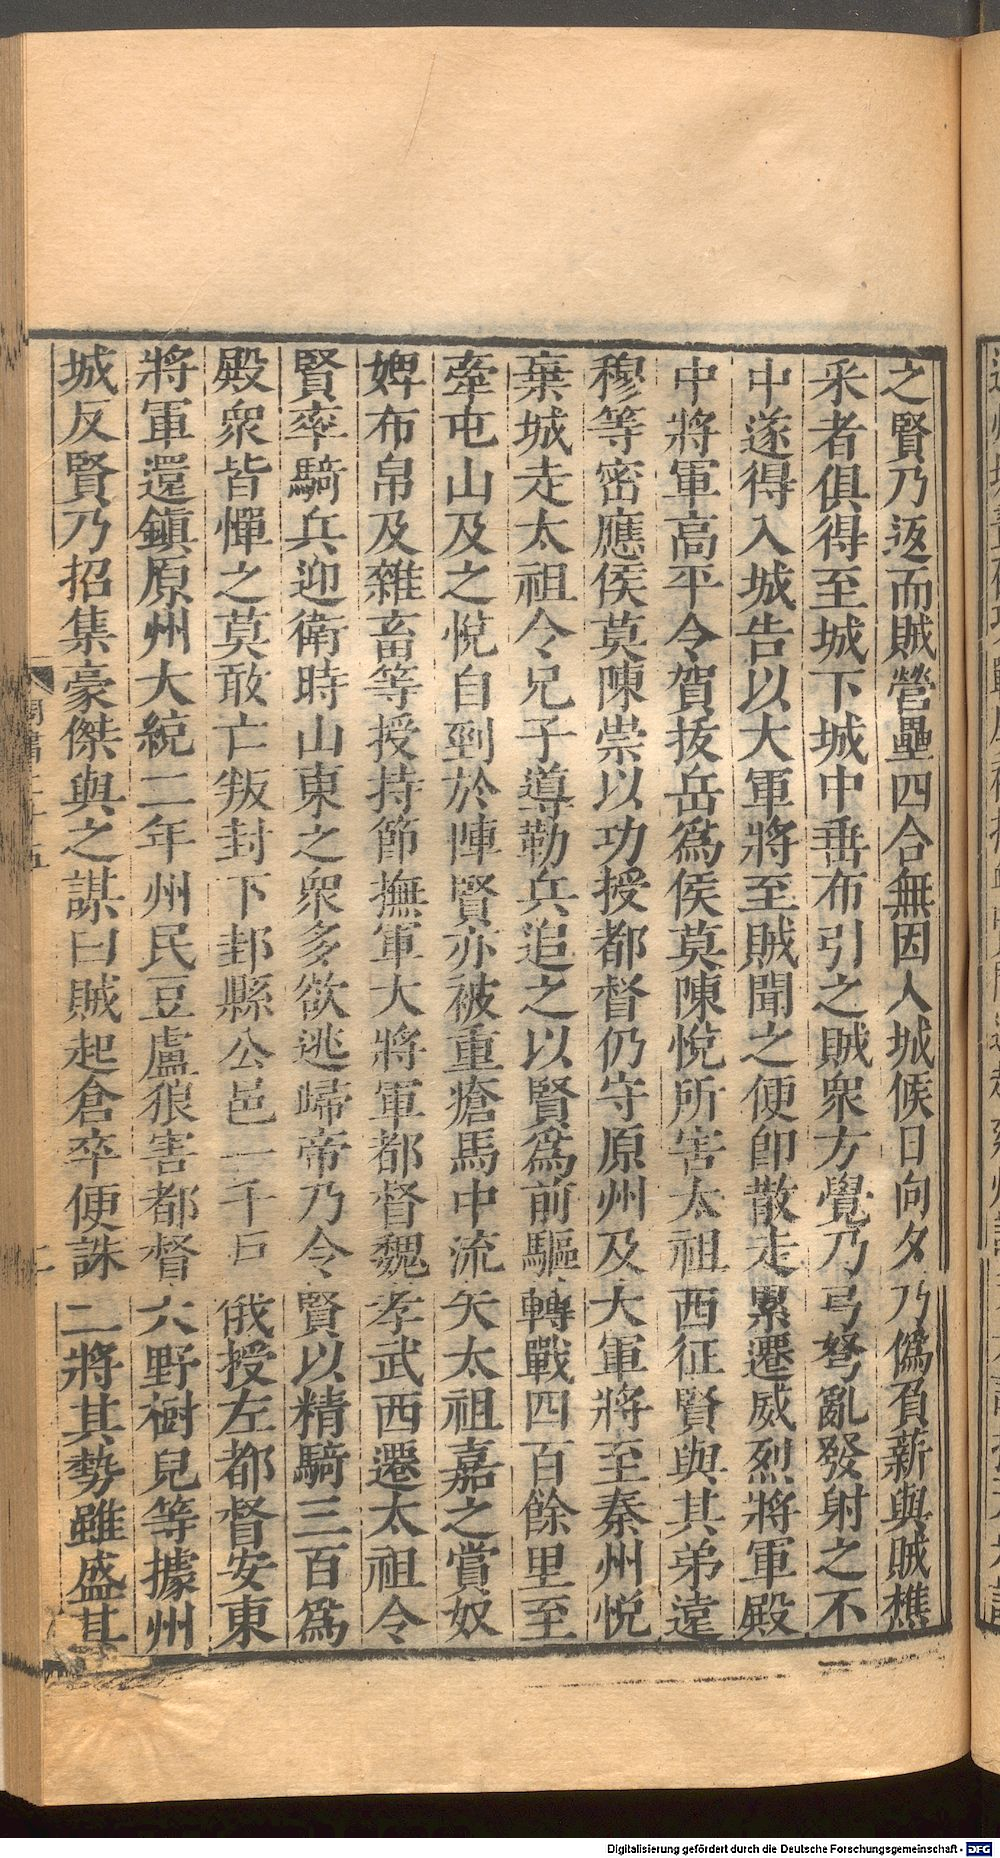 之賢乃返而賊營壘四合無因人城候日向夕乃僞負薪與賊樵
采者俱得至城下城中垂布引之賊衆方覺乃弓弩亂發射之不
中遂得入城告以大軍將至賊聞之便即散走累遷威烈將軍殿
中將軍高平令賀拔岳爲侯莫陳悅所害太祖西征賢與其弟遠
穆等密應侯莫陳崇以功授都督仍守原州及大軍將至秦州悅
棄城走太祖令兄子導勒兵追之以賢爲前驅轉戰四百餘里至
牽屯山及之悅自剄於陣賢亦被重瘡馬中流矢太祖嘉之賞奴
婢布帛及雜畜等授持節撫軍大將軍都督魏孝武西遷太祖令
賢率騎兵迎衛時山東之衆多欲逃歸帝乃令賢以精騎三百爲
殿衆皆憚之莫敢亡叛封下邽縣公邑一千戶俄授左都督安東
將軍還鎮原州大統二年州民豆盧狼害都督大野樹兒等據州
城反賢乃招集豪傑與之謀曰賊起倉卒便誅二將其勢雖盛其
Digitalisierung gefördert durch die Deutsche Forschungsgemeinschaft - DFG